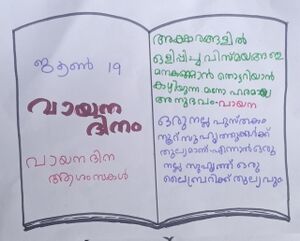 ജൂൺ 19
വായന
ദിനം
വായന ദിന
ആശംസകൾ
അക്ഷരങ്ങളിൽ
ഒളിപ്പിച്ച വിസ്മയങ്ങളെ
മനകണ്ണാൽ തൊട്ടറിയാൻ
കഴിയുന്ന മനോഹരമായ
അനുഭവം-വായന
ഒരു നല്ല പുസ്തകം
നൂറ് സുഹൃത്തുക്കൾക്ക്
തുല്യമാണ് എന്നാൽ ഒരു
നല്ല സുഹൃത്ത് ഒരു
ലൈബ്രറിക്ക് തുല്യവും